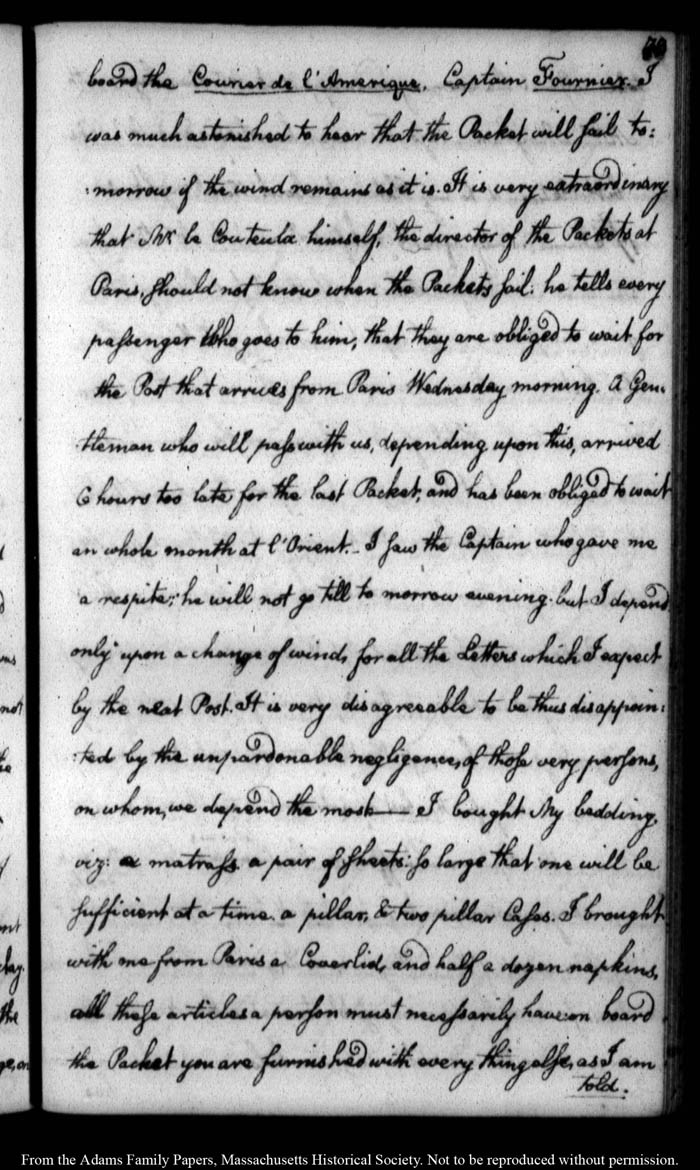 board the Courier de l'Amerique, Captain Fournier. I
was much astonished to hear that the Packet will sail to:
:morrow if the wind remains as it is. It is very extraordinary
that Mr. le Couteulx himself, the director of the Packets at
Paris, should not know when the Packets sail: he tells every
passenger who goes to him, that they are obliged to wait for
the Post that arrives from Paris Wednesday morning. A Gen:
:tleman who will pass with us, depending upon this, arrived
6 hours too late for the last Packet, and has been obliged to wait
an whole month at l'Orient. I saw the Captain who gave me
a respite; he will not go till to morrow evening. but I depend
only upon a change of wind, for all the Letters which I expect
by the next Post. It is very disagreeable to be thus disappoin:
:ted by the unpardonable negligence, of those very persons,
on whom, we depend the most — I bought My bedding.
viz: a matrass. a pair of sheets: so large that one will be
sufficient at a time. a pillar, & two pillar Cases. I brought
with me from Paris a Coverlid, and half a dozen napkins,
all these articles a person must necessarily have on board
the Packet you are furnished with every thing else, as I am
told.
From the Adams Family Papers, Massachusetts Historical Society. Not to be reproduced without permission.